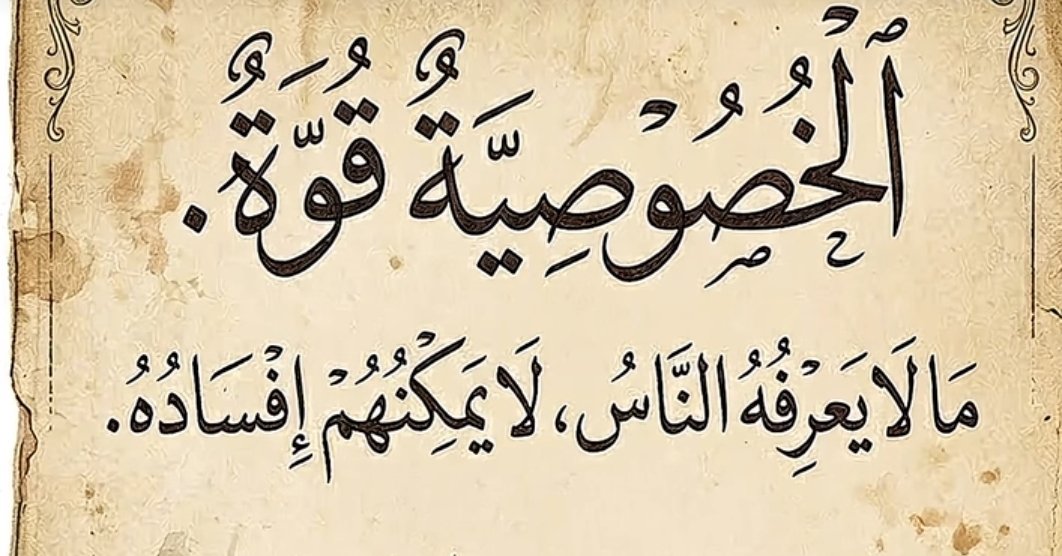 ٱلْخُصُوْصِيَّةُ قُوَّةٌ.
مَا لَا يَعْرِفُهُ النَّاسُ، لَا يَمْكِنُهُمْ إِفْسَادُهُ.